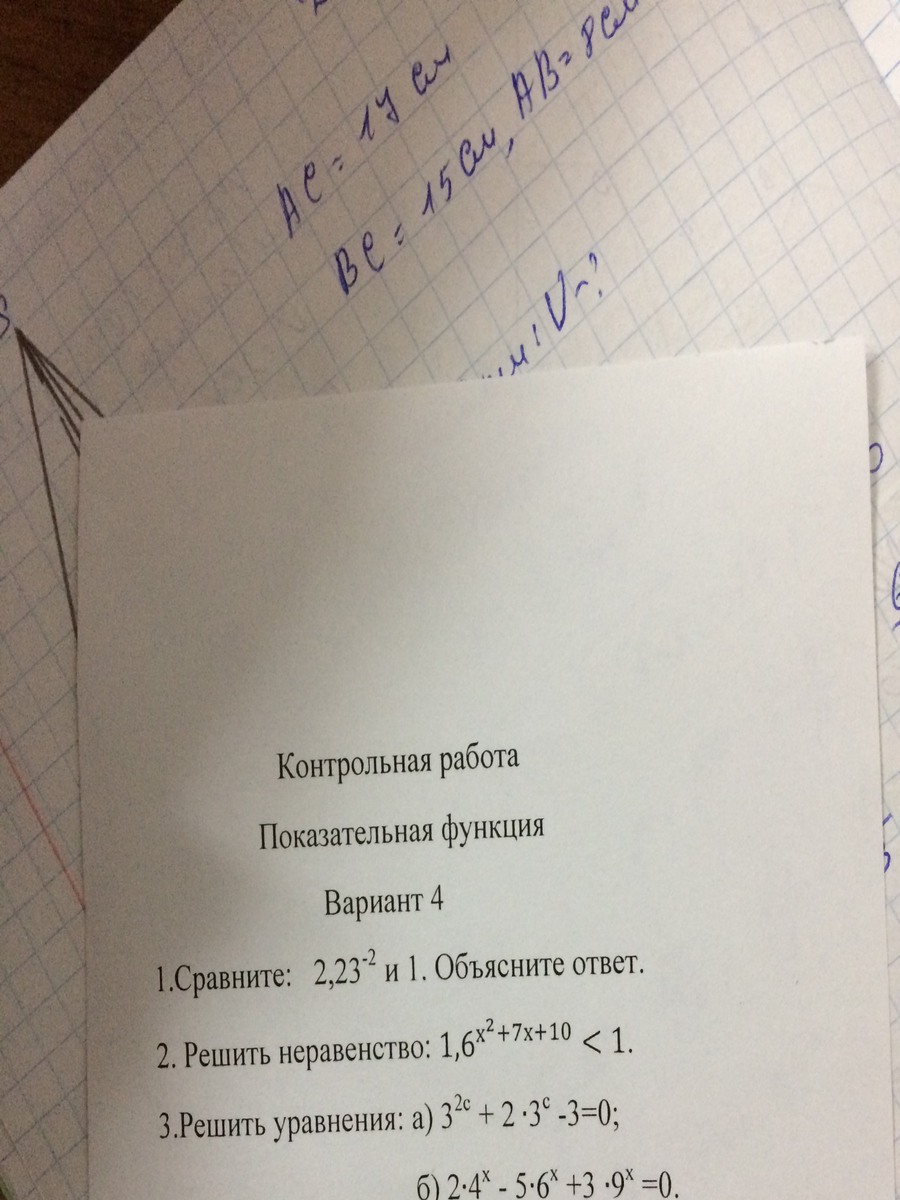 AC = 17 см
BC = 15 см, AB = 8 см
V-?
S
Контрольная работа
Показательная функция
Вариант 4
1.Сравните: 2,23⁻² и 1. Объясните ответ.
2. Решить неравенство: 1,6^{x²+7x+10} < 1.
3.Решить уравнения: а) 3^{2c} + 2 ·3^{c} -3=0;
б) 2·4^{x} - 5·6^{x} +3 ·9^{x} =0.